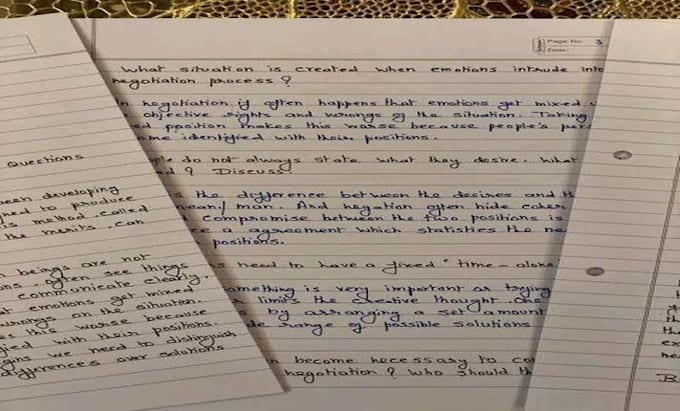 Page No. 3
Date:
What situation is created when emotions intrude
negotiation process ?
negotiation if often happens that emotions get mixed
objective rights and wrongs of the situation. Taking
position makes this worse because people's
identified with their positions.
do not always state what they desire. What
? Discuss.
the difference between the desires and
man. And negation often hide
compromise between the two positions is
a agreement which statisties the
positions.
need to have a fixed "time - alone
something is very important as trying
limits the creative thought. One
by arranging a set amount
range of possible solutions
become necessary to
negotiation ? Who should
Questions
been developing
to produce
method called
the merits. can
beings are not
often see things
communicate clearly.
emotions get mixed
on the situation.
worse because
with their positions.
we need to distinguish
differences over solutions
B